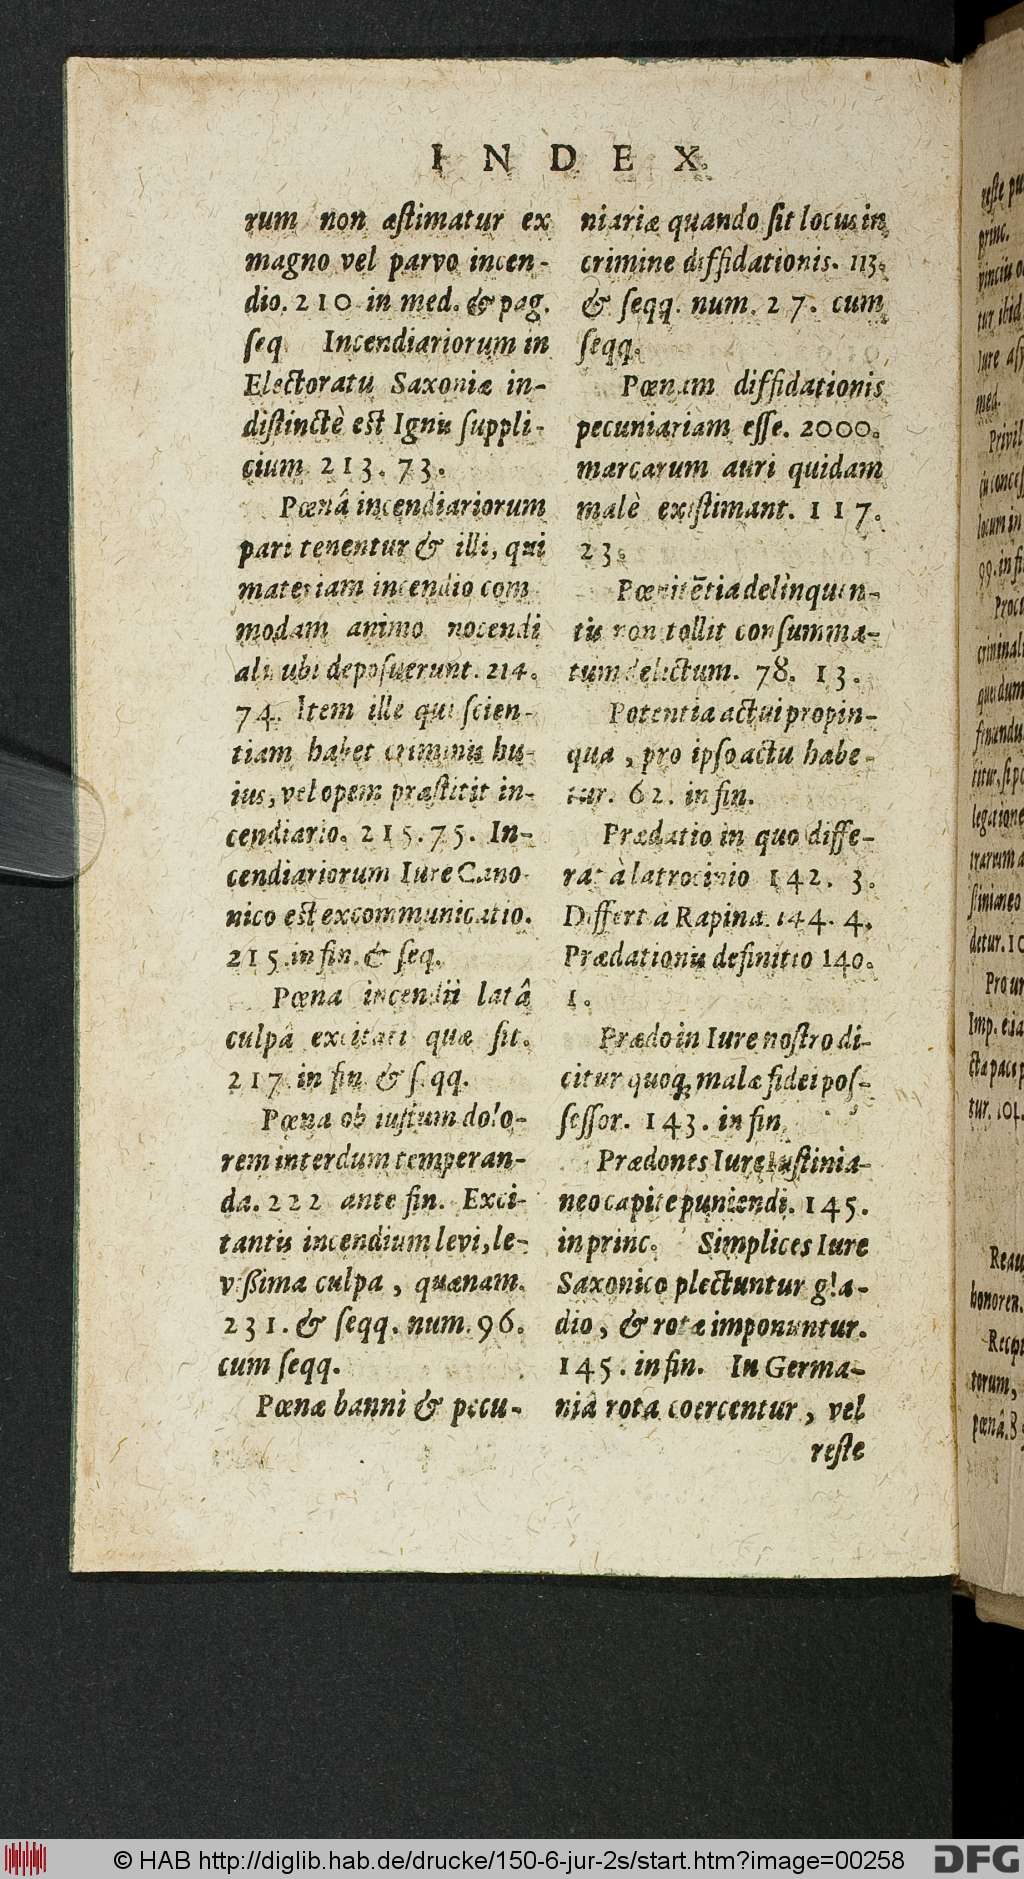 INDEX.
rum non æstimatur ex
magno vel parvo incen-
dio. 210 in med. & pag.
seq Incendiariorum in
Electoratu Saxoniæ in-
distinctè est Ignis suppli-
cium 213. 73.
Pœnâ incendiariorum
pari tenentur & illi, qui
materiam incendio com
modam animo nocendi
alicubi deposuerunt. 214.
74. Item ille qui scien-
tiam habet criminis hu-
ius, vel opem præstitit in-
cendiario. 215. 75. In-
cendiariorum Iure Cano
nico est excommunicatio.
215. in fin. & seq.
Pœna incendii latâ
culpâ excitati quæ sit.
217. in fin & seqq.
Pœna ob iustum dolo-
rem interdum temperan-
da. 222 ante fin. Exci-
tantis incendium levi, le-
vißima culpa, quænam.
231. & seqq. num. 96.
cum seqq.
Pœnæ banni & pecu-
niariæ quando sit locus in
crimine diffidationis. 113.
& seqq. num. 27. cum
seqq.
Pœnam diffidationis
pecuniariam esse. 2000.
marcarum auri quidam
malè existimant. 117.
23.
Pœnitētia delinquen-
tis non tollit consumma-
tum delictum. 78. 13.
Potentia actui propin-
qua, pro ipso actu habe-
tur. 62. in fin.
Prædatio in quo diffe-
rat à latrocinio 142. 3.
Differt à Rapina. 144. 4.
Prædationis definitio 140.
1.
Prædo in Iure nostro di-
citur quoq; malæ fidei pos-
sessor. 143. in fin
Prædones Iure Iustinia-
neo capite puniendi. 145.
in princ. Simplices Iure
Saxonico plectuntur gla-
dio, & rotæ imponuntur.
145. in fin. In Germa-
niâ rota coercentur, vel
reste
© HAB http://diglib.hab.de/drucke/150-6-jur-2s/start.htm?image=00258
DFG